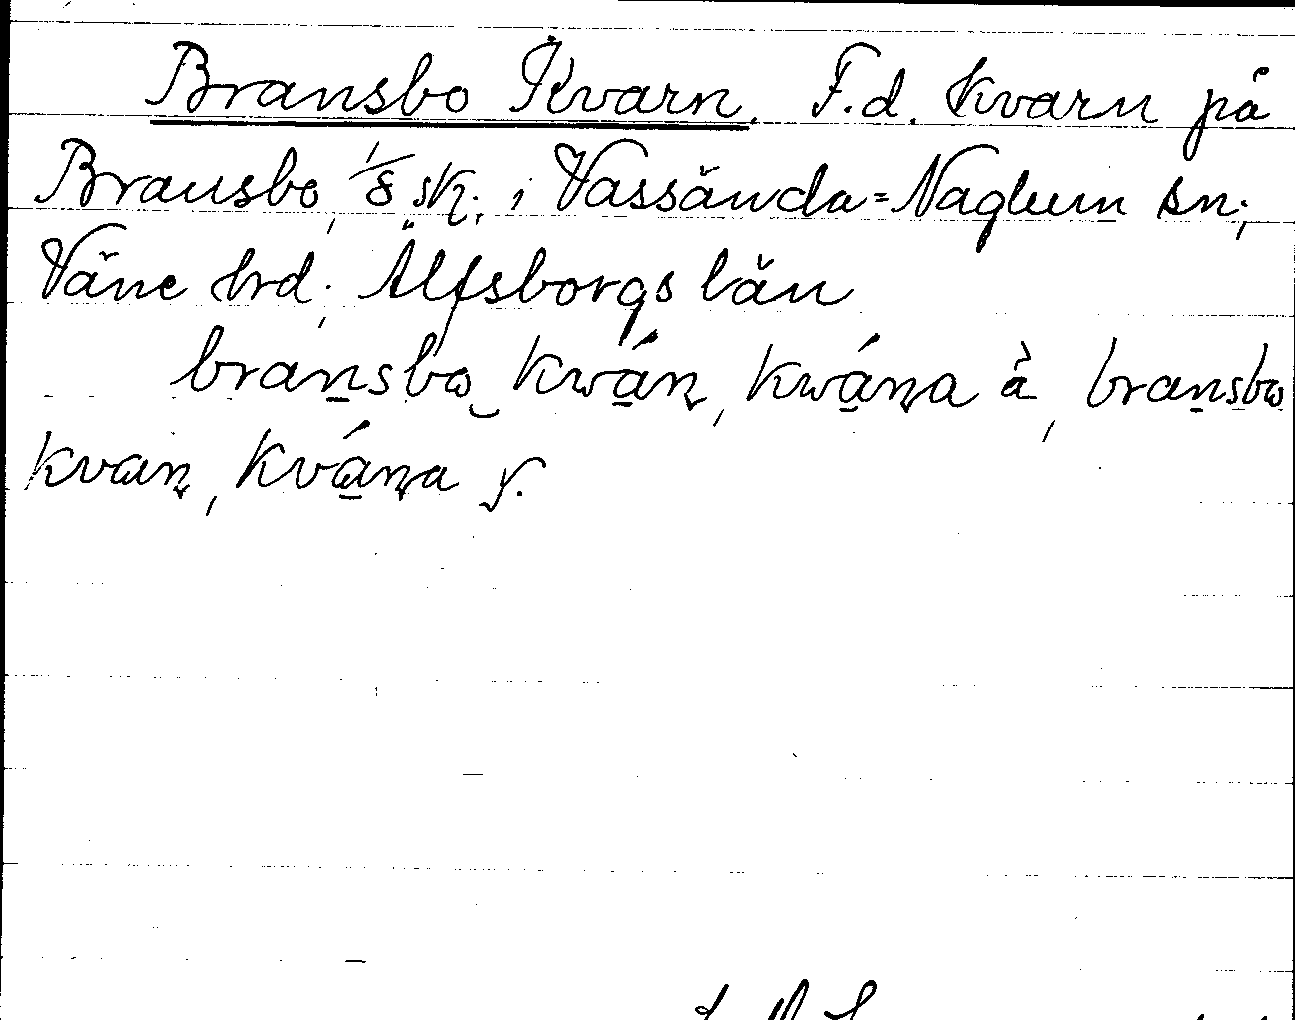 Bransbo Kvarn. F.d. kvarn på
Bransbo, 1/8 sk., i Vassända=Naglum sn;
Väne hrd; Älfsborgs län
bran̲sbɷ kwá̲ɳ, kwá̲ɳa à, bran̲sbɷ
kvaɳ, kvá̲ɳa y.